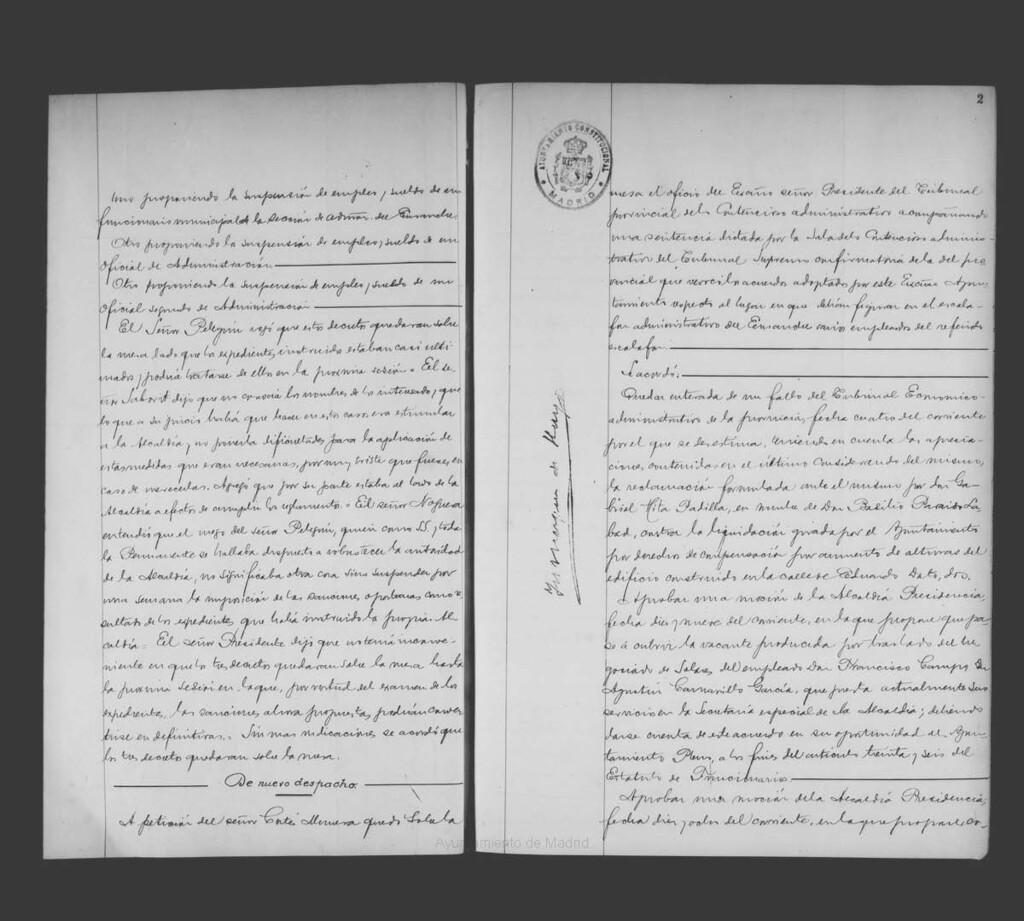 Uno proponiendo la suspensión de empleo y sueldo de un
funcionario municipal de la sección de admón. del Ensanche.
Otro proponiendo la suspensión de empleo y sueldo de un
Oficial de Administración
Otro proponiendo la suspensión de empleo y sueldo de un
Oficial segundo de Administración
El Señor Pelegrín rogó que estos decretos quedaran sobre
la mesa dado que los expedientes instruidos estaban casi ulti-
mados y podría tratarse de ellos en la próxima sesión = El se-
ñor Saborit dijo que no conocía los nombres de los interesados y que
lo que a su juicio había que hacer en este caso era estimular
a la Alcaldía y no ponerla dificultades para la aplicación de
estas medidas que eran necesarias, por muy triste que fuese, en
caso de merecerlas. Agregó que por su parte estaba al lado de la
Alcaldía a efectos de cumplir los reglamentos. = El señor Noguera
entendió que el ruego del señor Pelegrín, quien como SS. y toda
la Permanente se hallaba dispuesto a robustecer la autoridad
de la Alcaldía, no significaba otra cosa sino suspender por
una semana la imposición de las sanciones oportunas como re-
sultado de los expedientes que había instruido la propia Al-
caldía = El señor Presidente dijo que no tenía inconve-
niente en que los tres decretos quedaran sobre la mesa hasta
la próxima sesión en la que, por virtud del examen de los
expedientes, las sanciones ahora propuestas podrían conver-
tirse en definitivas. = Sin más indicaciones se acordó que
los tres decretos quedaran sobre la mesa.
De nuevo despacho.
A petición del señor Cortés Munera quedó sobre la
2
AYUNTAMIENTO CONSTITUCIONAL
MADRID
mesa el oficio del Excmo señor Presidente del Tribunal
provincial de lo Contencioso administrativo acompañando
una sentencia dictada por la Sala de lo Contencioso adminis-
trativo del Tribunal Supremo confirmatoria de la del pro-
vincial que revocó los acuerdos adoptados por este Excmo Ayun-
tamiento respecto al lugar en que debían figurar en el escala-
fón administrativo del Ensanche varios empleados del referido
escalafón.
Se acordó:
Quedar enterada de un fallo del Tribunal Económico-
administrativo de la provincia, fecha cuatro del corriente
por el que se desestima, teniendo en cuenta las aprecia-
ciones contenidas en el último considerando del mismo,
la reclamación formulada ante el mismo por don Ga-
briel Mita Padilla, en nombre de Don Basilio Paraíso La-
bad, contra la liquidación girada por el Ayuntamiento
por derechos de compensación por aumento de alturas del
edificio construido en la calle de Eduardo Dato, dos.
Aprobar una moción de la Alcaldía Presidencia,
fecha diez y nueve del corriente, en la que propone que pa-
se a cubrir la vacante producida por traslado del Ne-
gociado de Solares del empleado Don Francisco Campos Don
Agustín Camarillo García, que presta actualmente sus
servicios en la Secretaría especial de la Alcaldía; debiendo
darse cuenta de este acuerdo en su oportunidad al Ayun-
tamiento Pleno, a los fines del artículo treinta y seis del
Estatuto de Funcionarios
Aprobar una moción de la Alcaldía Presidencia,
fecha diez y ocho del corriente, en la que propone, co-
Ayuntamiento de Madrid